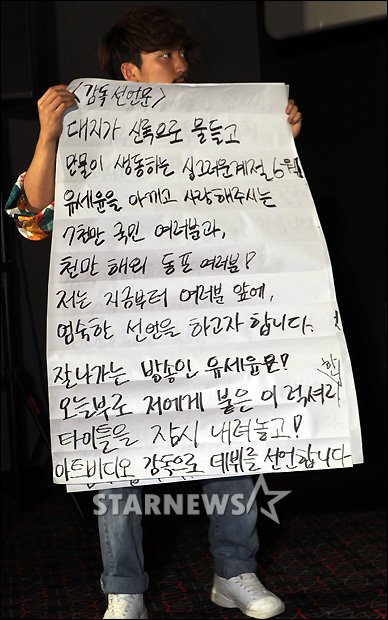 <감독 선언문>
대지가 신록으로 물들고
만물이 생동하는 싱그러운계절, 6월
유세윤을 아끼고 사랑해주시는
7천만 국민 여러분과,
천만 해외 동포 여러분!
저는 지금부터 여러분 앞에,
엄숙한 선언을 하고자 합니다.
잘나가는 방송인 유세윤은!
오늘부로 저에게 붙은 이 럭셔리한
타이틀을 잠시 내려놓고!
아트비디오 감독으로 데뷔를 선언합니다
STARNEWS